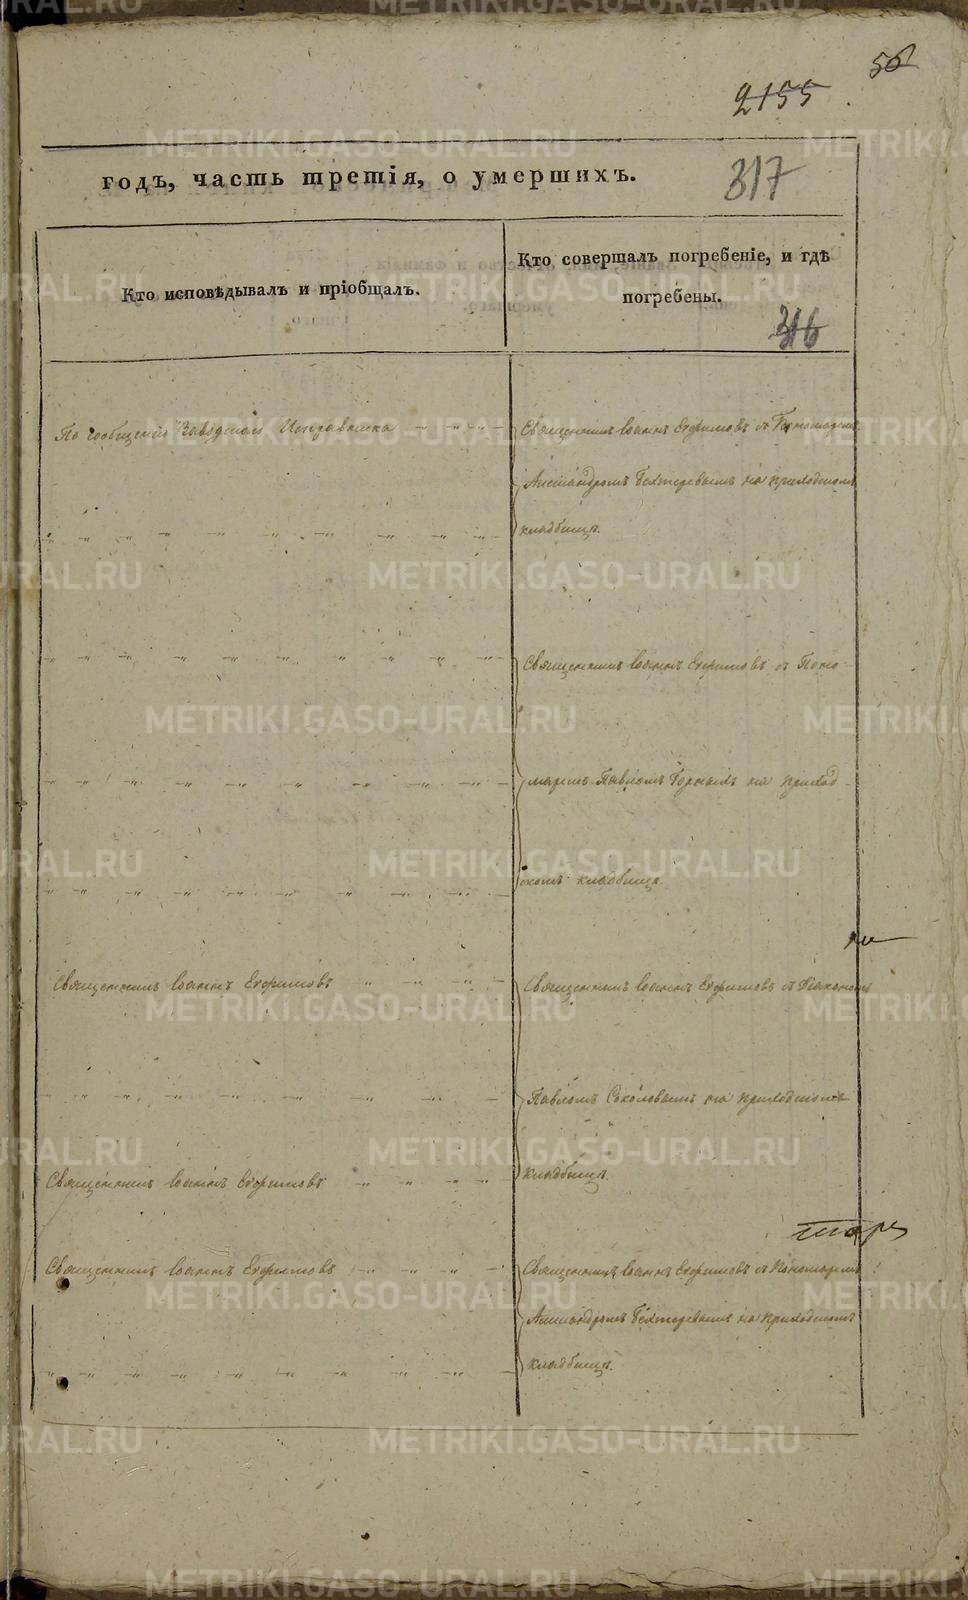 56
2155
годъ, часть третія, о умершихъ.
317
Кто исповѣдывалъ и пріобщалъ.
Кто совершалъ погребеніе, и гдѣ
погребены.
316
По сообщенію Заводскаго Исправника
Священникъ Іоаннъ Ефимовъ съ Пономаремъ
Александромъ Бехтеревымъ на приходскомъ
кладбищѣ.
Священникъ Іоаннъ Ефимовъ съ Поно-
маремъ Павломъ Горныхъ на приход-
скомъ кладбищѣ.
Священникъ Іоаннъ Ефимовъ
Священникъ Іоаннъ Ефимовъ съ Діакономъ
Павломъ Соколовымъ на приходскомъ
кладбищѣ.
Священникъ Іоаннъ Ефимовъ
Священникъ Іоаннъ Ефимовъ
Священникъ Іоаннъ Ефимовъ съ Пономаремъ
Александромъ Бехтеревымъ на приходскомъ
кладбищѣ.
METRIKI.GASO-URAL.RU